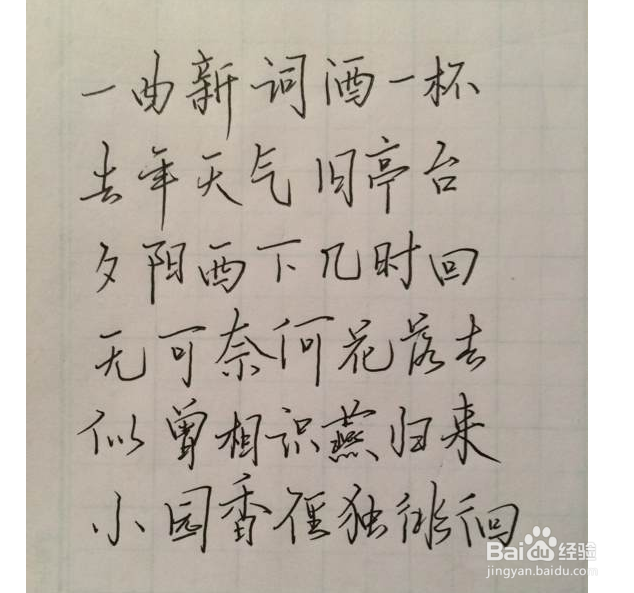 一曲新词酒一杯
去年天气旧亭台
夕阳西下几时回
无可奈何花落去
似曾相识燕归来
小园香径独徘徊
Baidu经验
jingyan.baidu.com